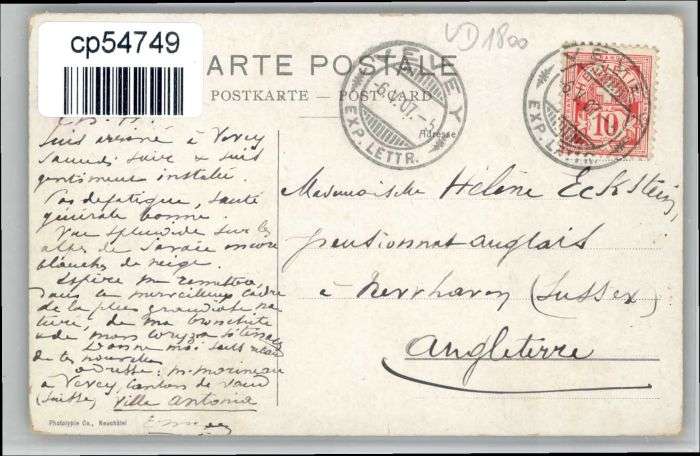 cp54749
VD 1800
CARTE POSTALE
POSTKARTE — POST CARD
Adresse
VEVEY
6.V.07.
EXP. LETTR.
VEVEY
6.V.07.
EXP. LETTR.
10
Suis arrivé à Vevey
Samedi soir & suis
gentiment installé.
Pas de fatigue, santé
générale bonne.
Vue splendide sur les
alpes de Savoie encore
blanches de neige.
Espère me remettre
dans ce merveilleux cadre
de la plus grandiose na
ture, de ma bronchite
& de mon coryza
Donne moi
de tes nouvelles
adresse: M. 
à Vevey, Canton de Vaud
(Suisse) Villa Antonia
Mademoiselle Hélène Eckstein,
pensionnat anglais
à (Sussex)
Angleterre
Phototypie Co., Neuchâtel